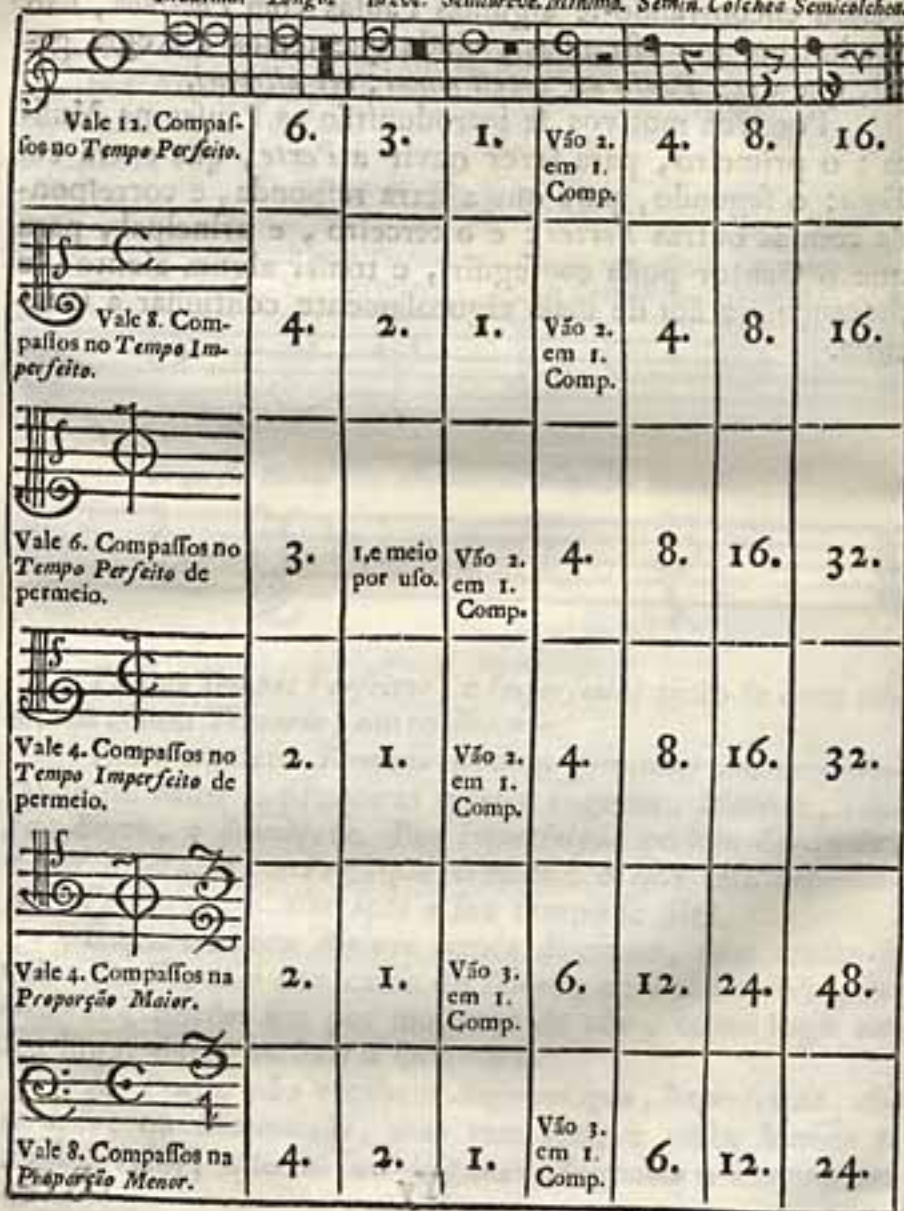 Longa Breve. Semibreve. Minima. Semin. Colchea Semicolchea.
Vale 12. Compaſ-
ſos no Tempo Perfeito.
6. 3. 1. Vão 2.
em 1.
Comp.
4. 8. 16.
Vale 8. Com-
paſſos no Tempo Im-
perfeito.
4. 2. 1. Vão 2.
em 1.
Comp.
4. 8. 16.
Vale 6. Compaſſos no
Tempo Perfeito de
permeio.
3. 1,e meio
por uſo.
Vão 2.
em 1.
Comp.
4. 8. 16. 32.
Vale 4. Compaſſos no
Tempo Imperfeito de
permeio.
2. 1. Vão 2.
em 1.
Comp.
4. 8. 16. 32.
3
2
Vale 4. Compaſſos na
Proporção Maior.
2. 1. Vão 3.
em 1.
Comp.
6. 12. 24. 48.
3
4
Vale 8. Compaſſos na
Proporção Menor.
4. 2. 1. Vão 3.
em 1.
Comp.
6. 12. 24.